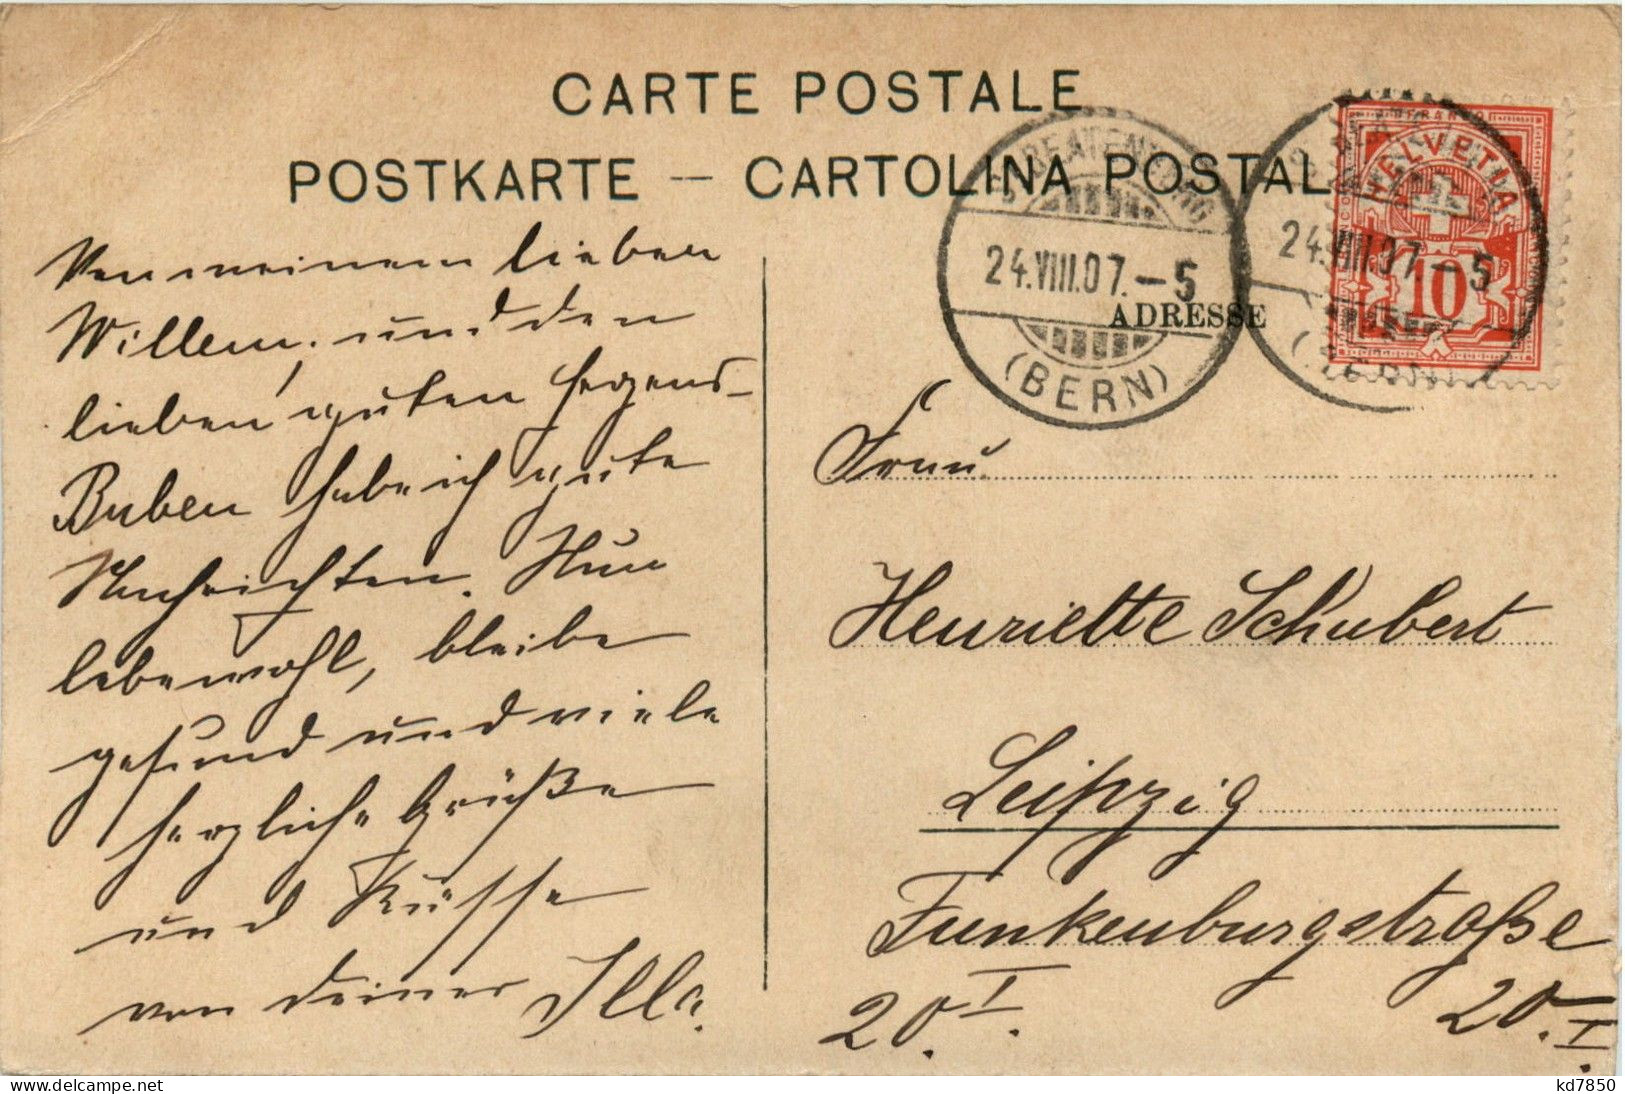 CARTE POSTALE
POSTKARTE — CARTOLINA POSTAL
ST. BEATENBERG
24.VIII.07.–5
(BERN)
HELVETIA
10
24.VIII.07.–5
ADRESSE
Von meinem lieben
Willem, und den
lieben guten Herzens-
Buben habe ich gute
Nachrichten. Nun
lebewohl, bleibe
gesund und viele
herzliche Grüße
und Küsse
von deiner Illa.
Frau
Henriette Schubert
Leipzig
Funkenburgstraße
20.I. 20.I.
kd7850